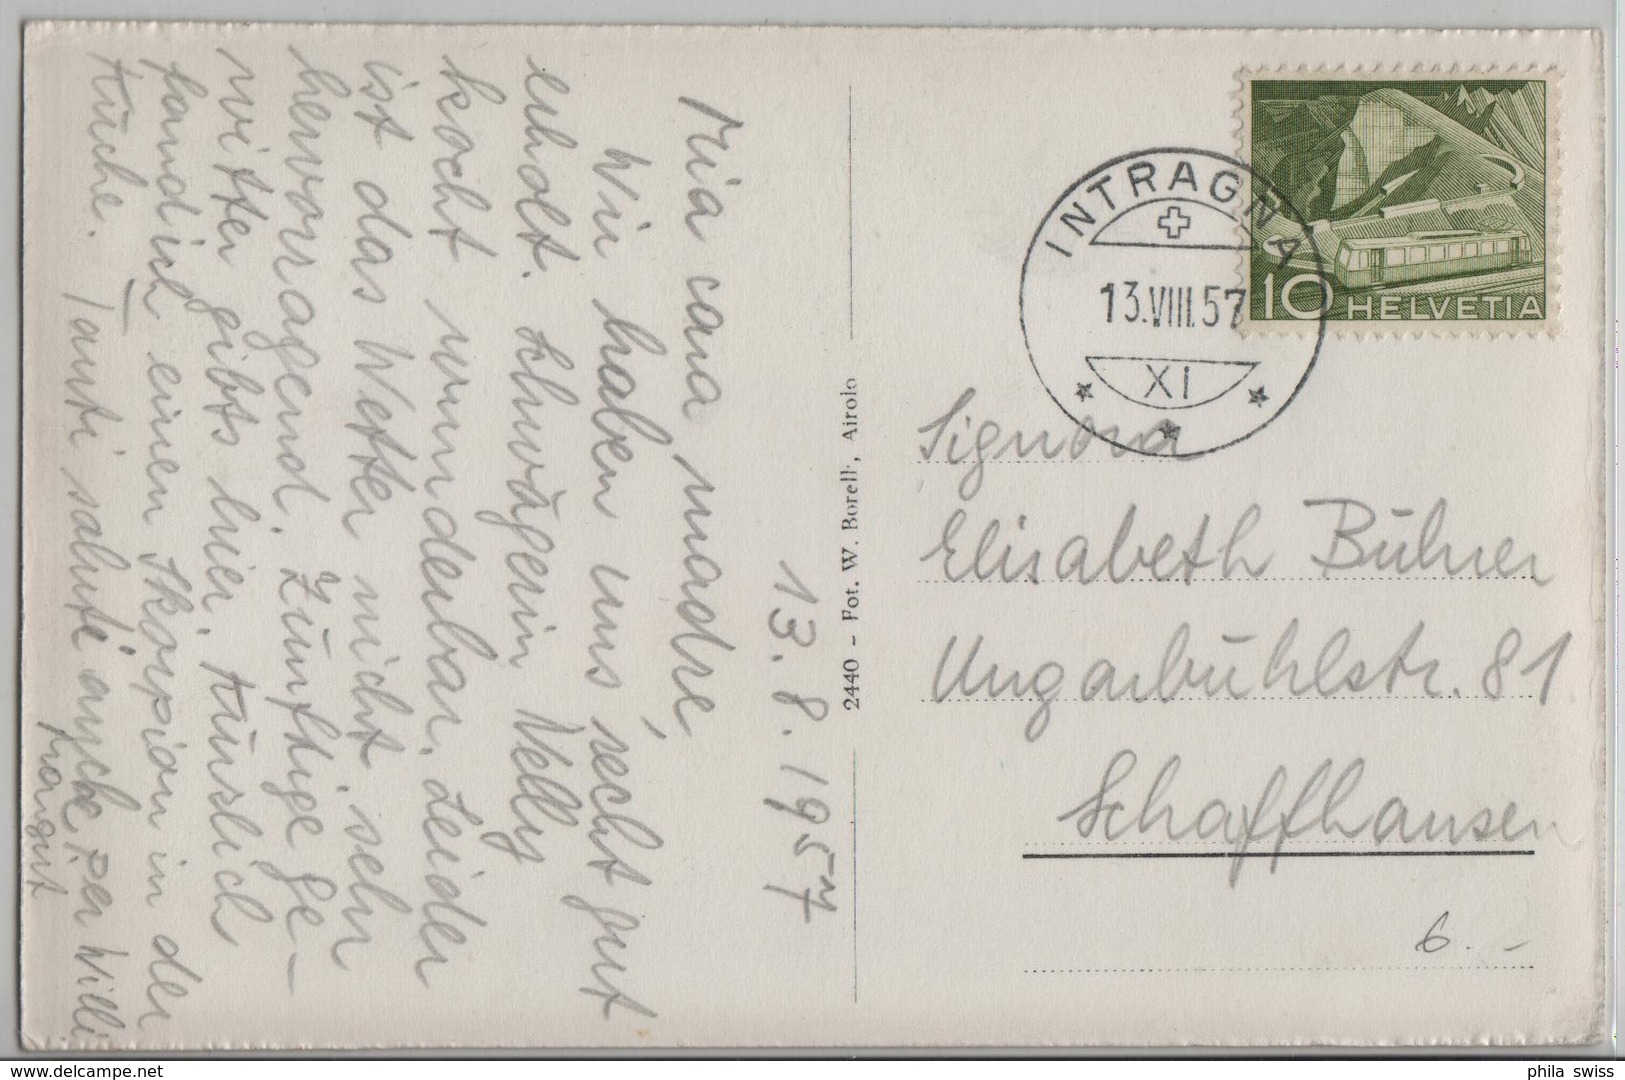 13. 8. 1957
Mia cara madre,
Wir haben uns recht gut
erholt. Schwägerin Nelly
kocht wunderbar. Leider
ist das Wetter nicht sehr
hervorragend. Zünftige Ge-
witter gibts hier. Kürzlich
fand ich einen Skorpion in der
Küche. Tanti saluti anche per Willi
2440 - Fot. W. Borelli, Airolo
INTRAGNA
13.VIII.57
XI
10 HELVETIA
Signora
Elisabeth Bührer
Ungarbühlstr. 81
Schaffhausen
6.-
phila swiss
delcampe.net